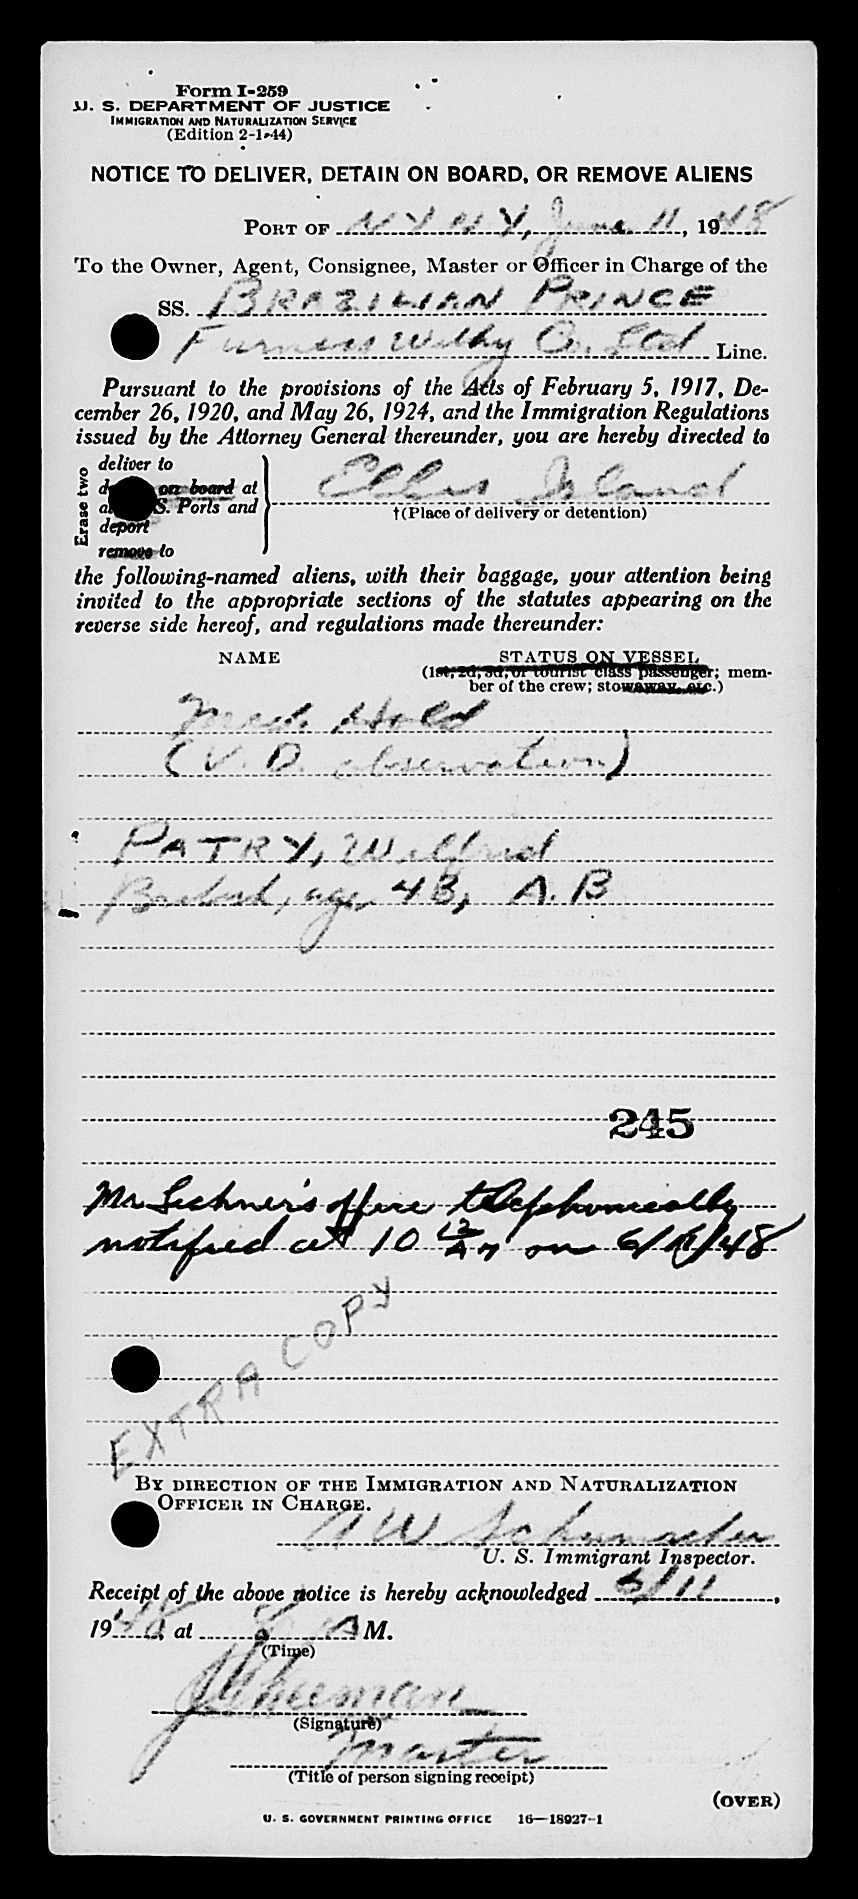 Form I-259
U. S. DEPARTMENT OF JUSTICE
IMMIGRATION AND NATURALIZATION SERVICE
(Edition 2-1-44)
NOTICE TO DELIVER, DETAIN ON BOARD, OR REMOVE ALIENS
PORT OF N Y N Y, June 11, 1948
To the Owner, Agent, Consignee, Master or Officer in Charge of the
SS. BRAZILIAN PRINCE
Furness Withy Co. Ltd Line.
Pursuant to the provisions of the Acts of February 5, 1917, De-
cember 26, 1920, and May 26, 1924, and the Immigration Regulations
issued by the Attorney General thereunder, you are hereby directed to
Erase two
deliver to
on board at
S. Ports and
deport
remove to
Ellis Island
†(Place of delivery or detention)
the following-named aliens, with their baggage, your attention being
invited to the appropriate sections of the statutes appearing on the
reverse side hereof, and regulations made thereunder:
NAME STATUS ON VESSEL
(1st, 2d, 3d, or tourist class passenger; mem-
ber of the crew; stowaway, etc.)
Med. Hold
(V. D. observation)
PATRY, Wilfred
British, age 43, A. B
245
Mr. office telephonically
notified at 10 AM on 6/ /48
EXTRA COPY
BY DIRECTION OF THE IMMIGRATION AND NATURALIZATION
OFFICER IN CHARGE.
A W Schumacher
U. S. Immigrant Inspector.
Receipt of the above notice is hereby acknowledged 6/11,
1948, at 8 A M.
(Time)
(Signature)
Master
(Title of person signing receipt)
(OVER)
U. S. GOVERNMENT PRINTING OFFICE 16—18027-1